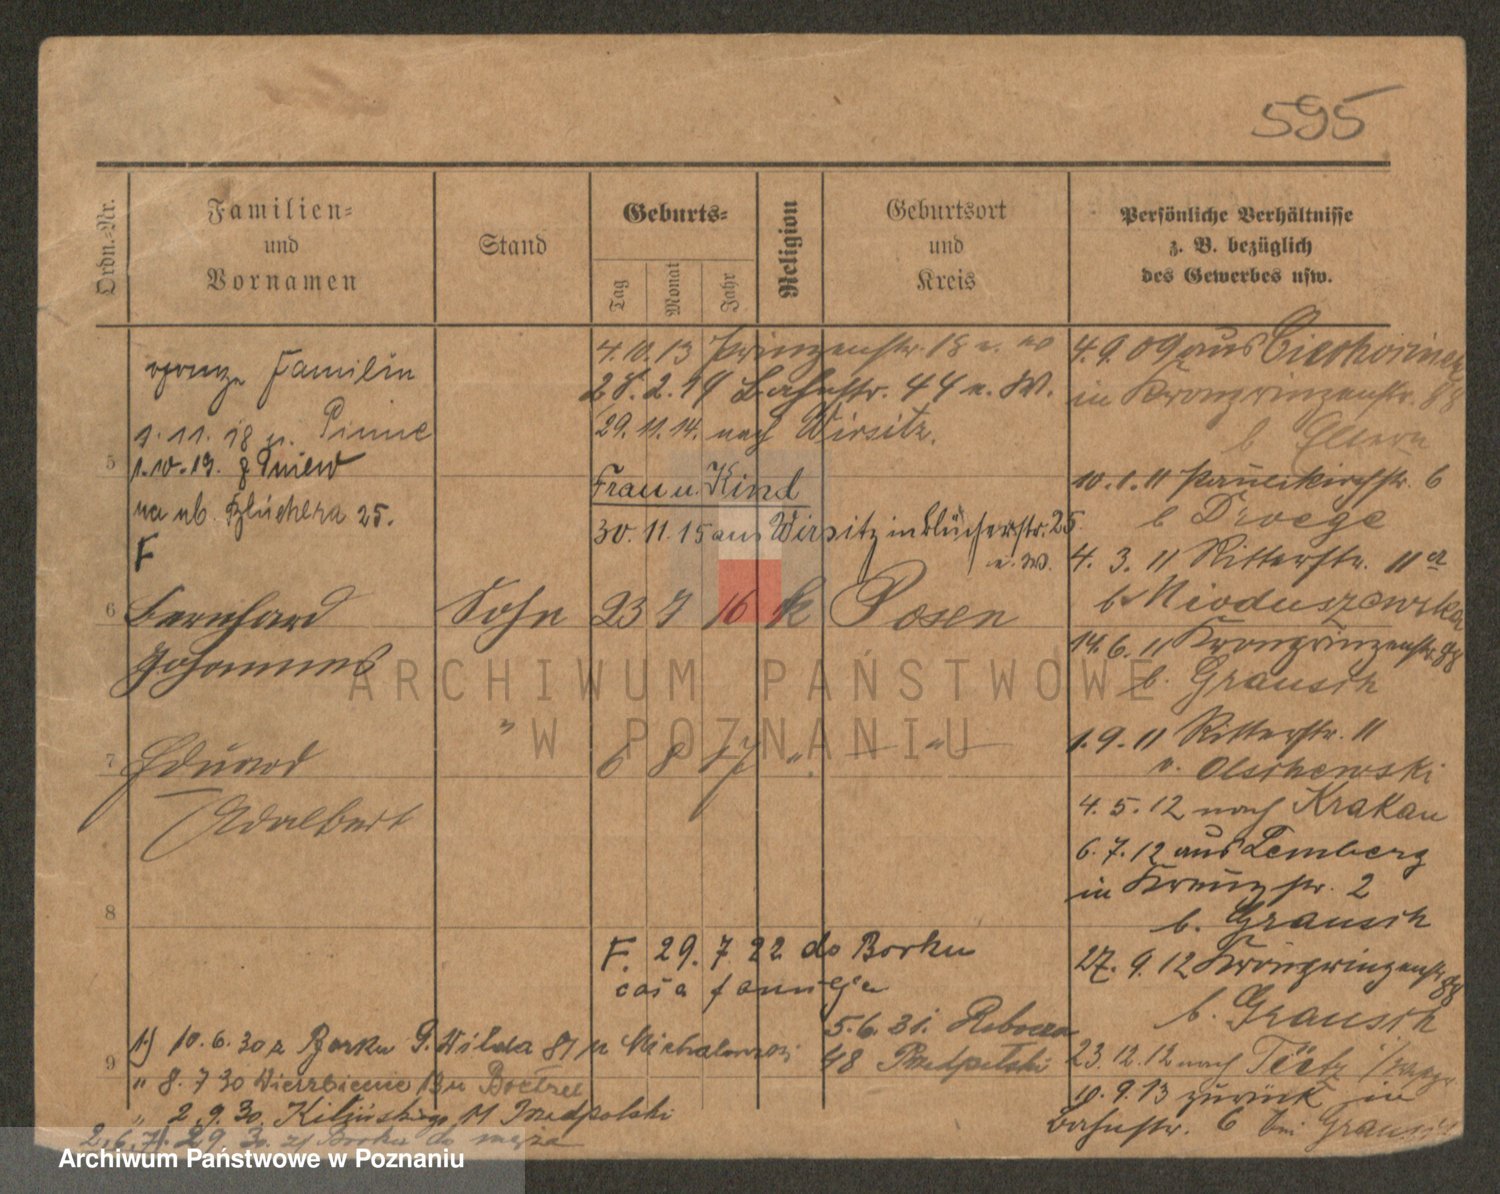 595
Ordn.-Nr.
Familien-
und
Vornamen
Stand
Geburts-
Tag
Monat
Jahr
Religion
Geburtsort
und
Kreis
Persönliche Verhältnisse
z. B. bezüglich
des Gewerbes usw.
Familie
1.11.18 n. Pinne
1.10.19. z Pniew
na ub. Blüchera 25.
F
4.10.13 Prinzenstr. 18 u. W
28.2.14 Bahnstr. 44 u. W.
29.11.14. nach Wirsitz.
Frau u. Kind
30.11.15 aus Wirsitz in Blücherstr. 25.
u. W.
5
6 Bernhard Sohn 23 7 16 k Posen
Johannes
7 Eduard " 6 8 17 " — " —
Adalbert
8
F. 29. 7 22 do Borku
cała familja
9
1.) 10.6.30 z Borku G. Wilda 81 u
" 8.7 30 u
" 2.9.30. 11
29. 30. z Borku do męża
5.6.31.
48
4.9.09 aus
in Kronprinzenstr. 88
b Eltern
10.1.11 Paulikirchstr. 6
b Droege
4.3.11 Ritterstr. 11a
b Mioduszewska
14.6.11 Kronprinzenstr. 88
b. Grausch
1.9.11 Ritterstr. 11
b. Olschewski
4.5.12 nach Krakau
6.7.12 aus Lemberg
in Kreuzstr. 2
b. Grausch
27.9.12 Kronprinzenstr. 88
b. Grausch
23.12.12 nach
10.9.13 zurück in
Bahnstr. 6 bei Grausch
ARCHIWUM PAŃSTWOWE
W POZNANIU
Archiwum Państwowe w Poznaniu